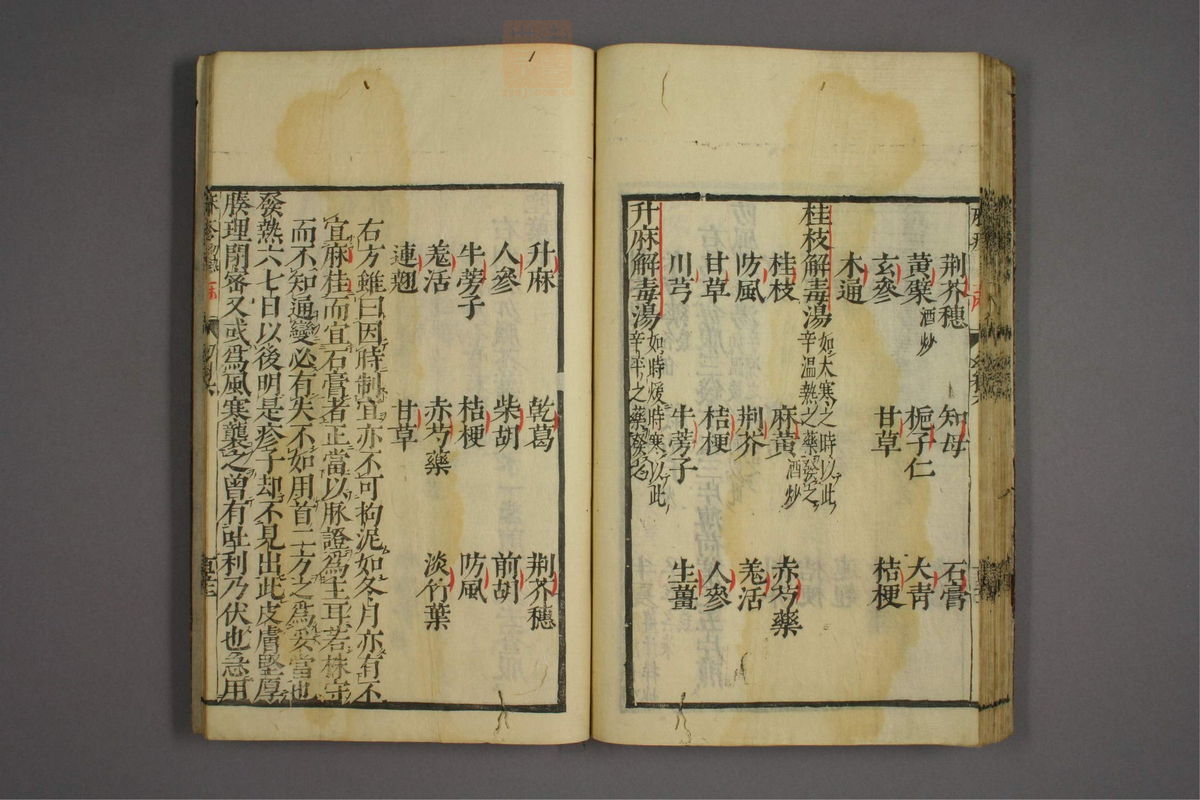 荊芥穗 知母 石膏
黃蘗酒炒 梔子仁 大青
玄參 甘草 桔梗
木通
桂枝解毒湯 如大寒之時以此
辛溫熱之藥發之
桂枝 麻黃酒炒 赤芍藥
防風 荊芥 羗活
甘草 桔梗 人參
川芎 牛蒡子 生薑
升麻解毒湯 如時煖時寒以此
辛平之藥發之
升麻 乾葛 荊芥穗
人參 柴胡 前胡
牛蒡子 桔梗 防風
羗活 赤芍藥 淡竹葉
連翹 甘草
右方雖曰因時制宜亦不可拘泥如冬月亦有不
宜麻桂而宜石膏者正當以脉證為主耳若株守
而不知通變必有失不如用首二方之為妥當也
發熱六七日以後明是疹子却不見出此皮膚堅厚
腠理閉密又或為風寒襲之曾有吐利乃伏也急用